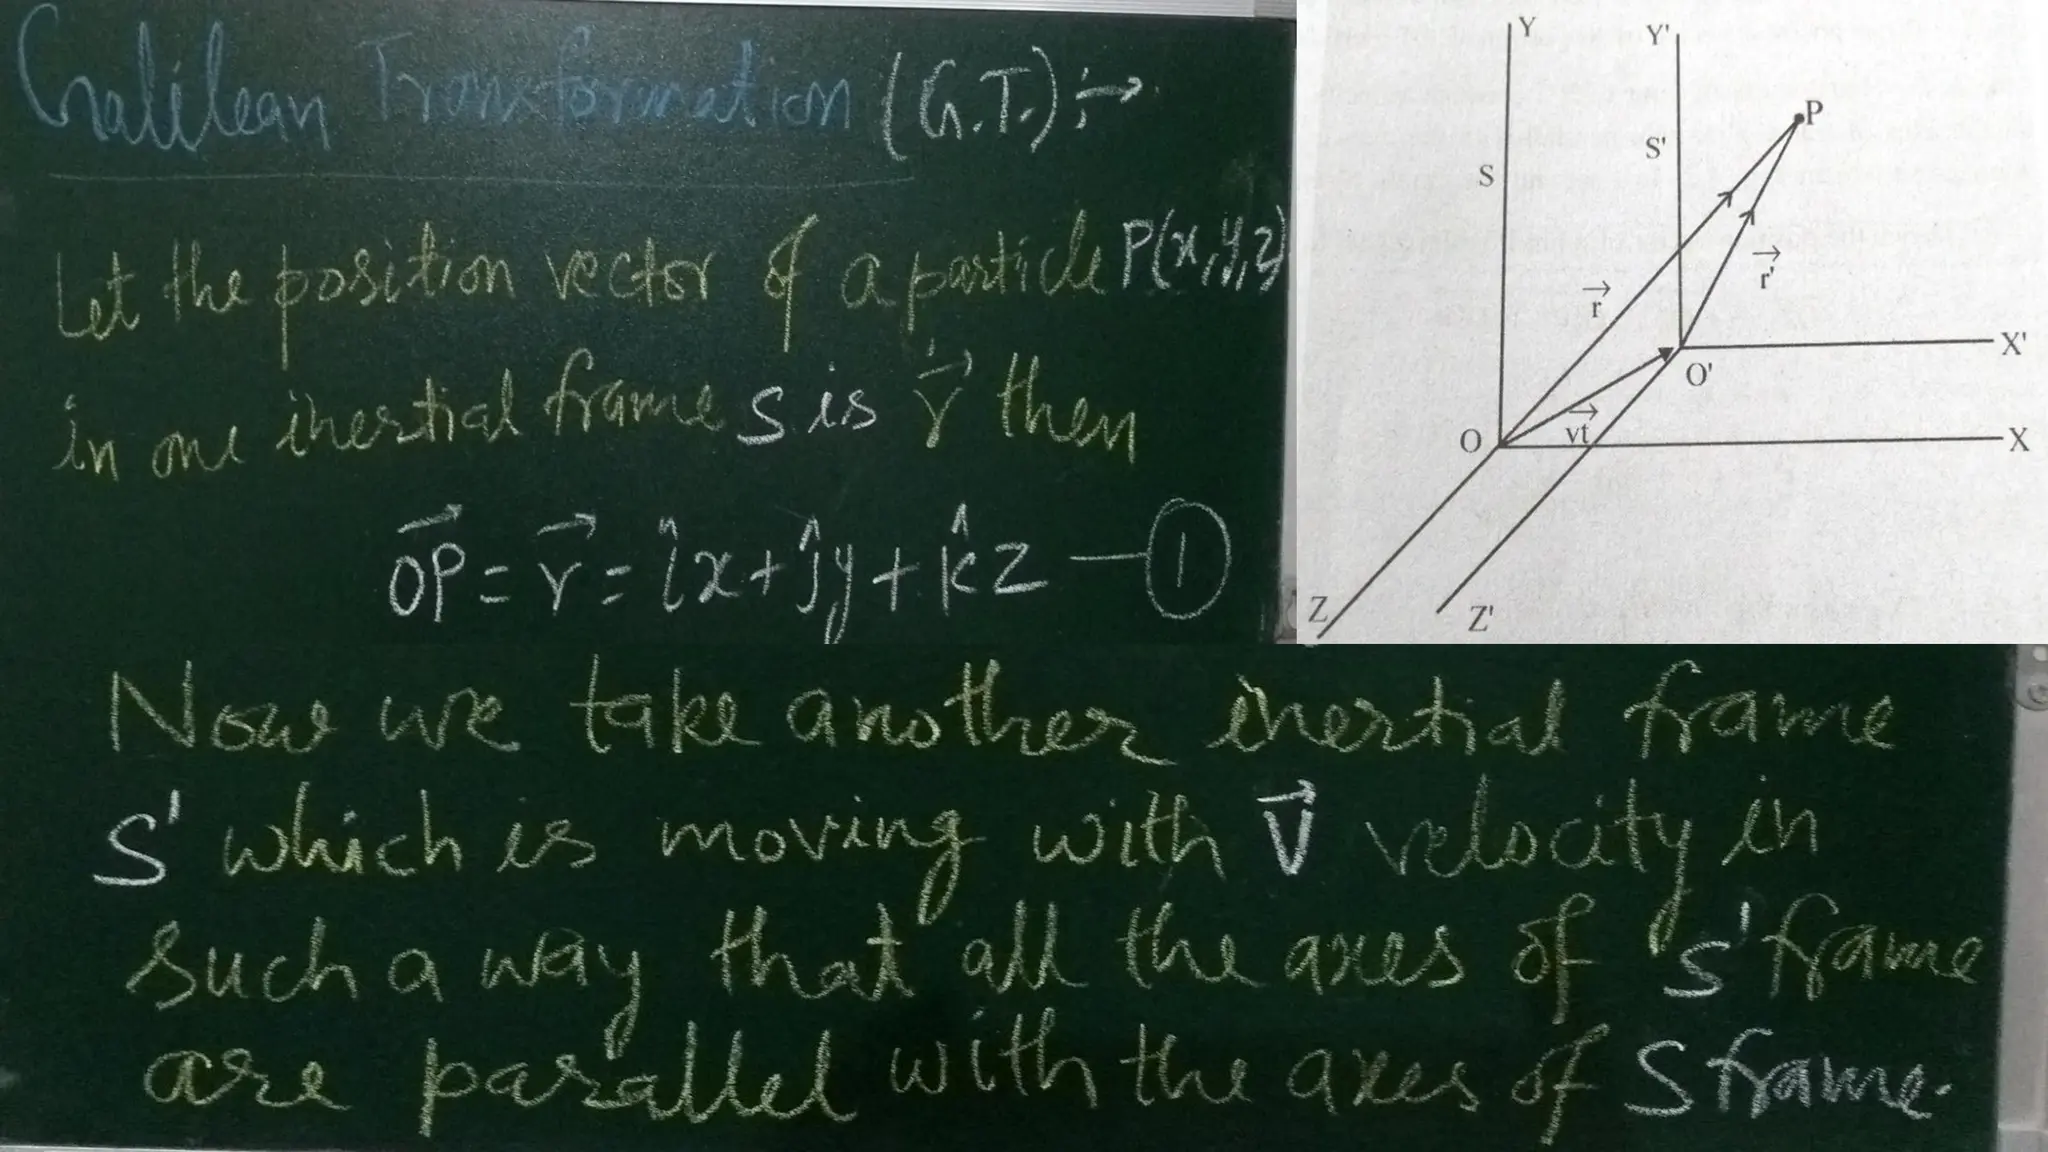 Galilean Transformation (G.T.) :→
Let the position vector of a particle P(x,y,z)
in one inertial frame S is r⃗ then
O⃗P⃗ = r⃗ = îx + ĵy + k̂z — ①
Now we take another inertial frame
S' which is moving with V⃗ velocity in
such a way that all the axes of S' frame
are parallel with the axes of S frame.
Y
Y'
P
S'
S
r⃗'
r⃗
X'
O'
O
v⃗t
X
Z
Z'